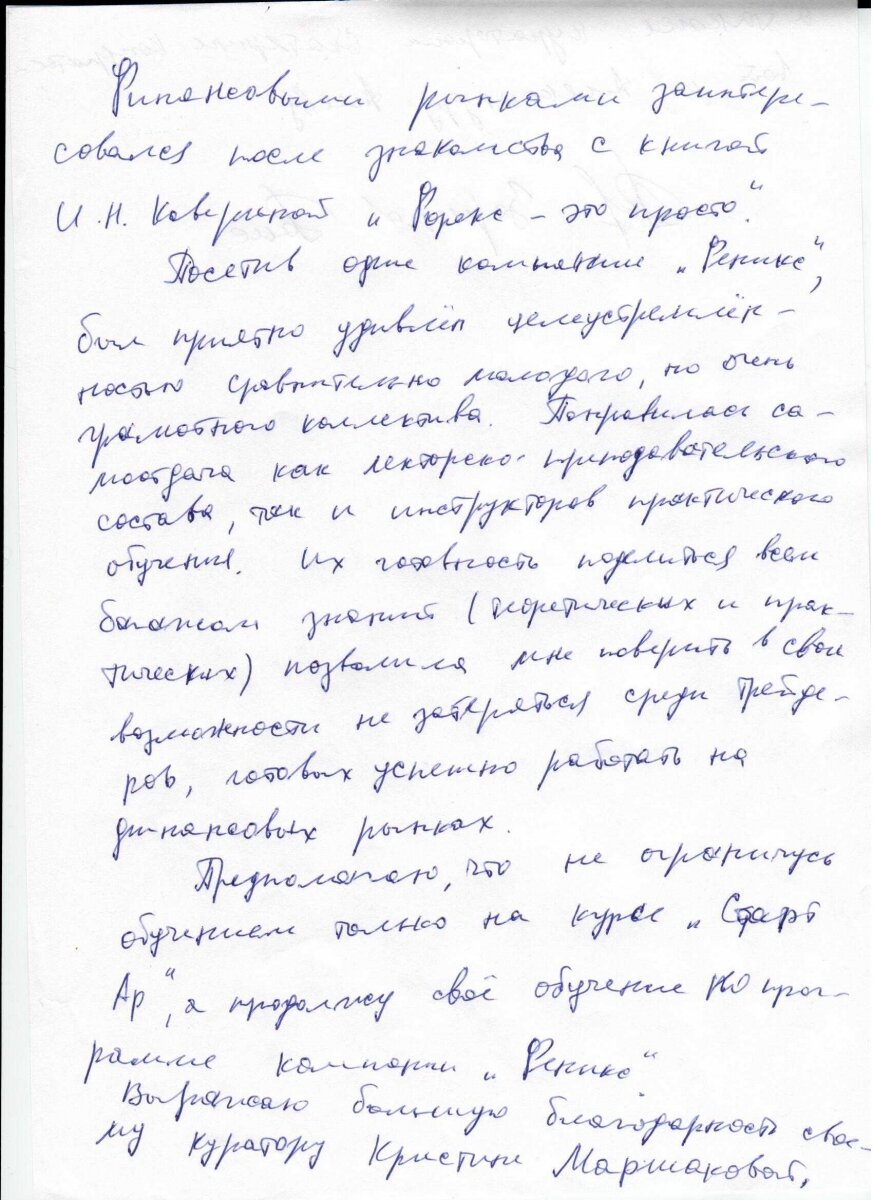 Финансовыми рынками заинтере-
совался после знакомства с книгой
И.Н. Каверзиной „Форекс – это просто“.
Посетив офис компании „Феникс“,
был приятно удивлён целеустремлён-
ностью сравнительно молодого, но очень
грамотного коллектива. Понравилась са-
моотдача как лекторско-преподавательского
состава, так и инструкторов практического
обучения. Их готовность поделиться всем
багажом знаний (теоретических и прак-
тических) позволила мне поверить в свои
возможности не затеряться среди трейде-
ров, готовых успешно работать на
финансовых рынках.
Предполагаю, что не ограничусь
обучением только на курсе „Старт
Ар“, а продолжу своё обучение по прог-
рамме компании „Феникс“
Выражаю большую благодарность свое-
му куратору Кристине Маршаковой.